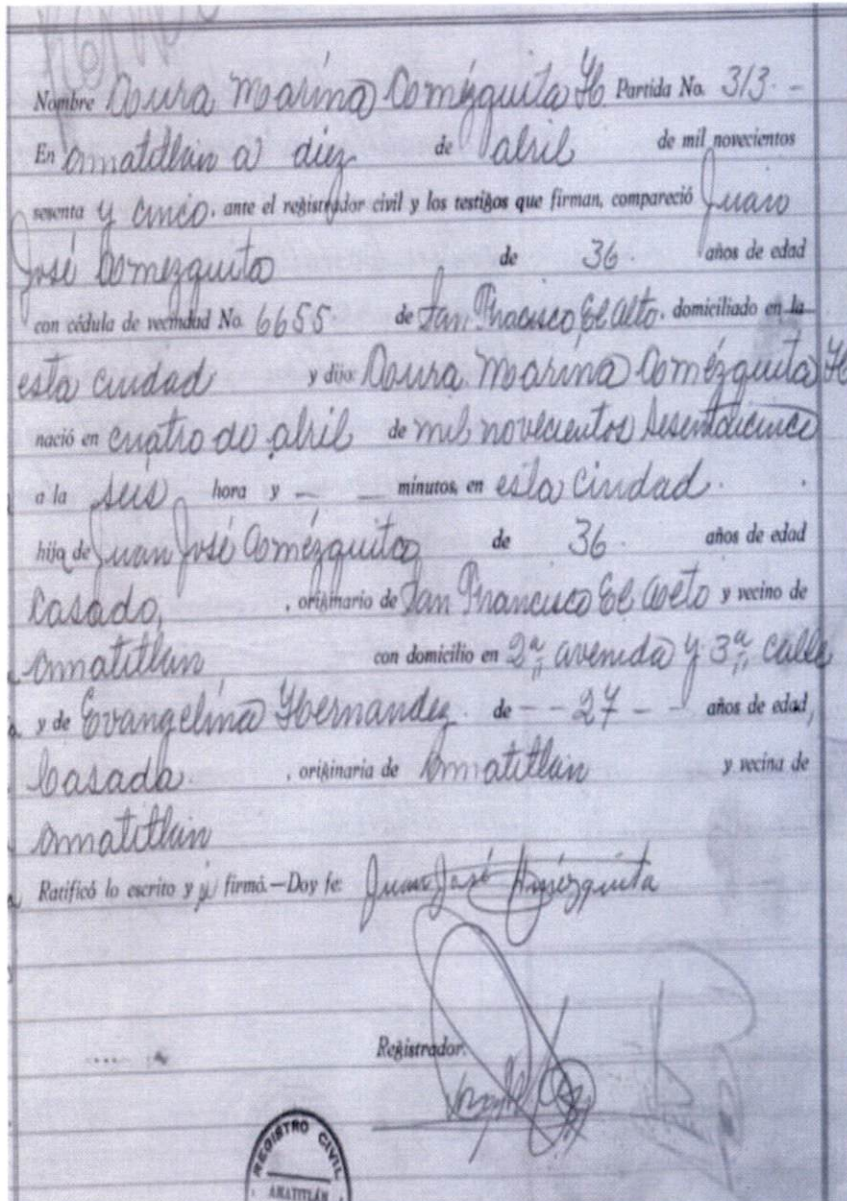 Nombre Aura Marina Amézquita H. Partida No. 313.-
En Amatitlan a diez de abril de mil novecientos
sesenta y cinco, ante el registrador civil y los testigos que firman, compareció Juan
José Amezquita de 36. años de edad
con cédula de vecindad No. 6655. de San Fracisco El Alto, domiciliado en la
esta ciudad y dijo: Aura Marina Amézquita H
nació en cuatro de abril de mil novecientos sesentaicinco
a la seis hora y — — minutos, en esta ciudad.
hija de Juan José Amézquita de 36. años de edad
Casado, , originario de San Francisco El Alto y vecino de
Amatitlan con domicilio en 2ª avenida y 3ª calle
y de Evangelina Hernandez. de - - 27 - - años de edad,
Casada. , originaria de Amatitlan y vecina de
Amatitlan
Ratificó lo escrito y sí firmó.—Doy fe: Juan José Amézquita
Registrador:
REGISTRO CIVIL
AMATITLÁN